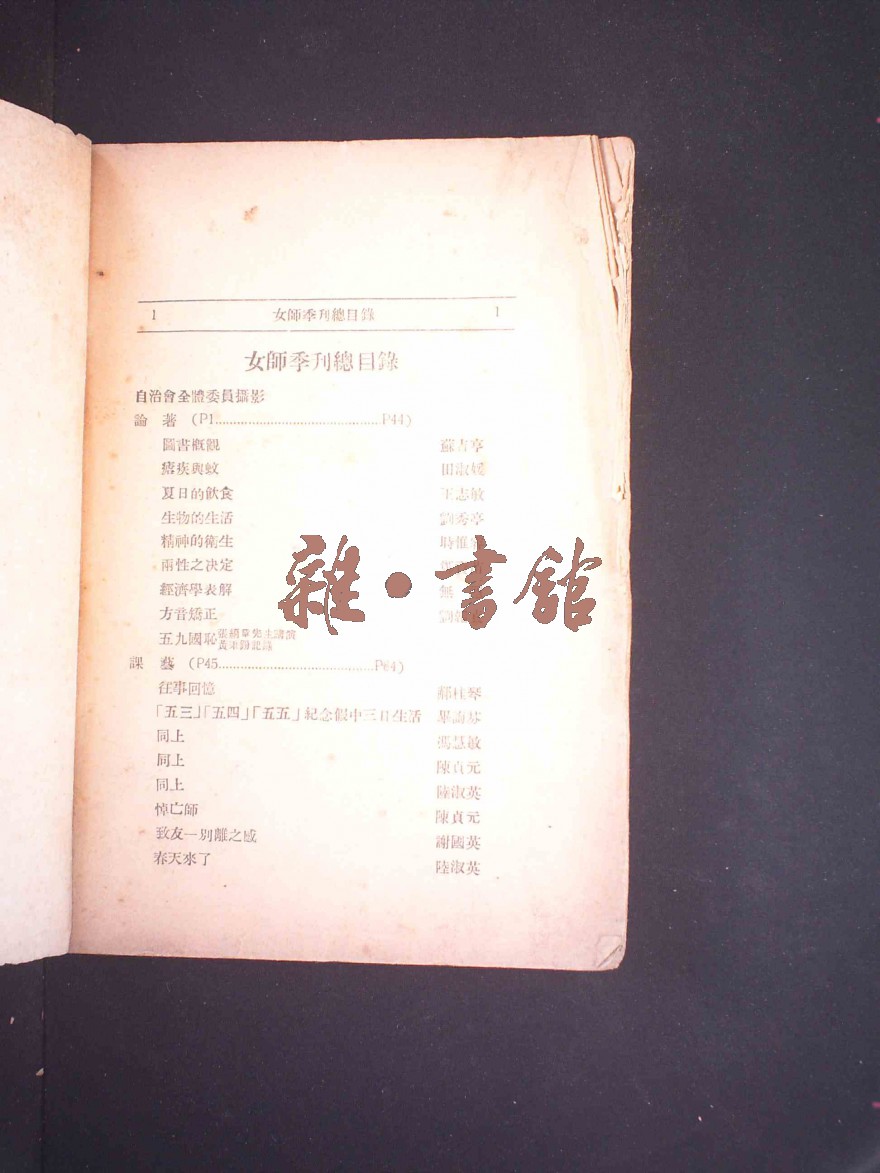 1 女師季刋總目錄 1
女師季刋總目錄
自治會全體委員攝影
論 著 (P1..........................................P44)
圖書概觀 蘇吉亭
瘧疾與蚊 田淑媛
夏日的飲食 王志敏
生物的生活 劉秀亭
精神的衛生 時惟
兩性之决定
經濟學表解 無
方音矯正 劉
五九國恥
課 藝 (P45........................................P64)
往事回憶
「五三」「五四」「五五」紀念假中三日生活
同上 馮慧敏
同上 陳貞元
同上 陸淑英
悼亡師 陳貞元
致友—别離之感 謝國英
春天來了 陸淑英
雜·書館